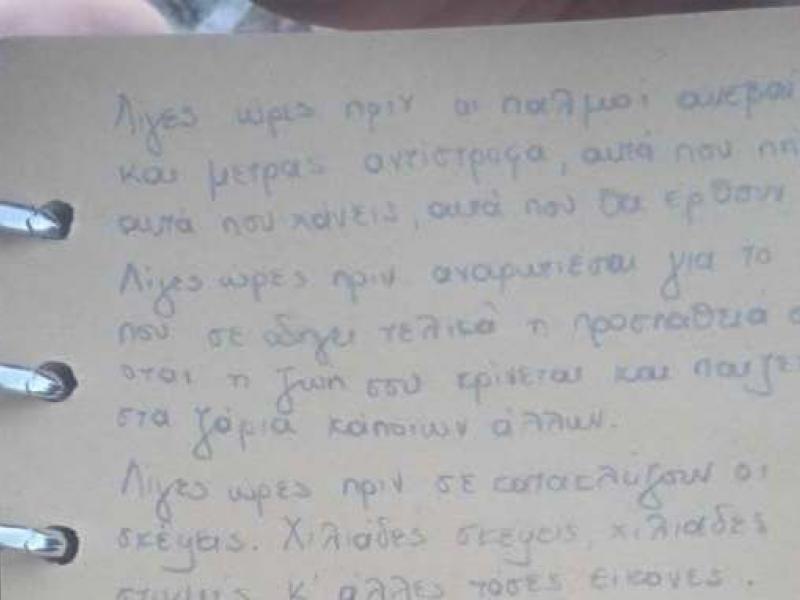 Λίγες ώρες πριν οι παλμοί ανεβαί
και μετράς αντίστροφα, αυτά που πή
αυτά που χάνεις, αυτά που θα έρθουν
Λίγες ώρες πριν αναρωτιέσαι για το
που σε οδηγεί τελικά η προσπάθειά σ
όταν η ζωή σου κρίνεται και παίζε
στα ζάρια κάποιων άλλων.
Λίγες ώρες πριν σε κατακλύζουν οι
σκέψεις. Χιλιάδες σκέψεις, χιλιάδες
στιγμές κ' άλλες τόσες εικόνες.